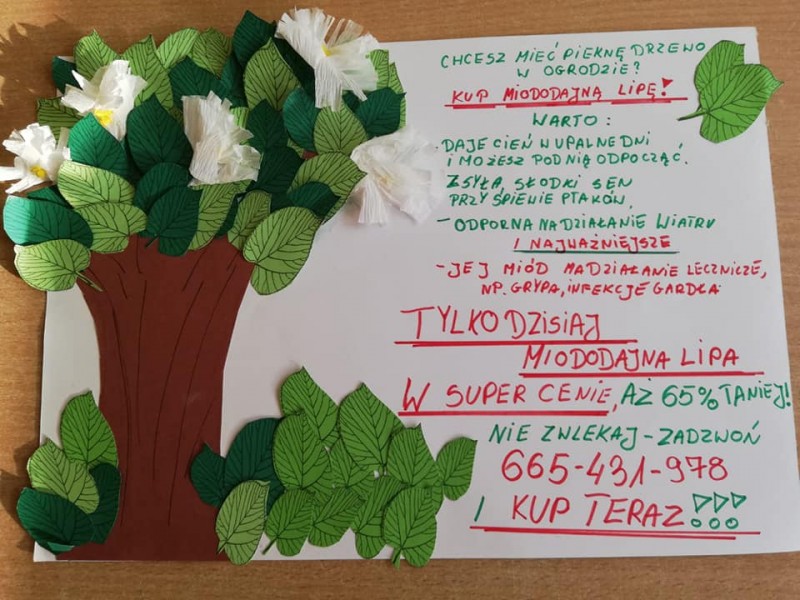 CHCESZ MIEĆ PIĘKNĘ DRZEWO
W OGRODZIE?
KUP MIODODAJNĄ LIPĘ!
WARTO:
- DAJE CIEŃ W UPALNE DNI
I MOŻESZ POD NIĄ ODPOCZĄĆ.
ZSYŁA SŁODKI SEN
PRZY ŚPIEWIE PTAKÓW,
- ODPORNA NA DZIAŁANIE WIATRU
I NAJWAŻNIEJSZE
- JEJ MIÓD MA DZIAŁANIE LECZNICZE,
NP. GRYPA, INFEKCJE GARDŁA
TYLKO DZISIAJ
MIODODAJNA LIPA
W SUPER CENIE, AŻ 65% TANIEJ!
NIE ZWLEKAJ - ZADZWOŃ
665-431-978
I KUP TERAZ!!!